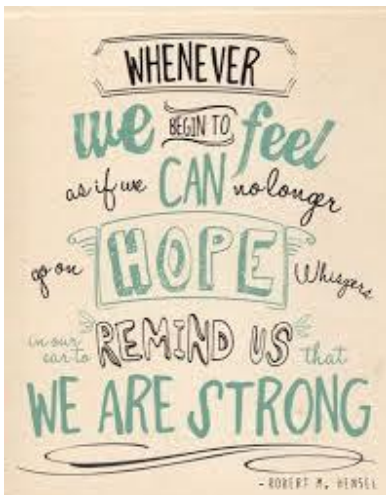 WHENEVER
we BEGIN TO feel
as if we CAN no longer
go on HOPE Whispers
in our
ear to REMIND US that
WE ARE STRONG
- ROBERT M. HENSEL